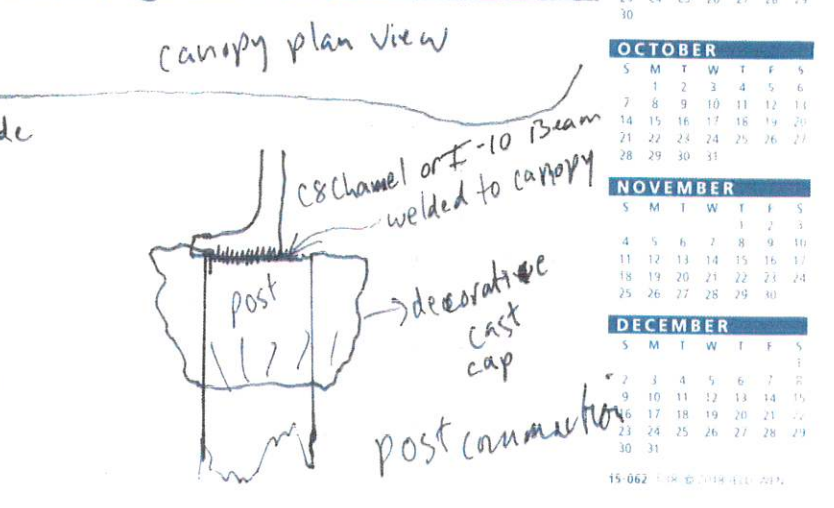 canopy plan view
de
C8 Channel or I-10 Beam
welded to canopy
post
decorative
cast
cap
post
30
OCTOBER
S M T W T F S
1 2 3 4 5 6
7 8 9 10 11 12 13
14 15 16 17 18 19 20
21 22 23 24 25 26 27
28 29 30 31
NOVEMBER
S M T W T F S
1 2 3
4 5 6 7 8 9 10
11 12 13 14 15 16 17
18 19 20 21 22 23 24
25 26 27 28 29 30
DECEMBER
S M T W T F S
1
2 3 4 5 6 7 8
9 10 11 12 13 14 15
16 17 18 19 20 21 22
23 24 25 26 27 28 29
30 31
15-062